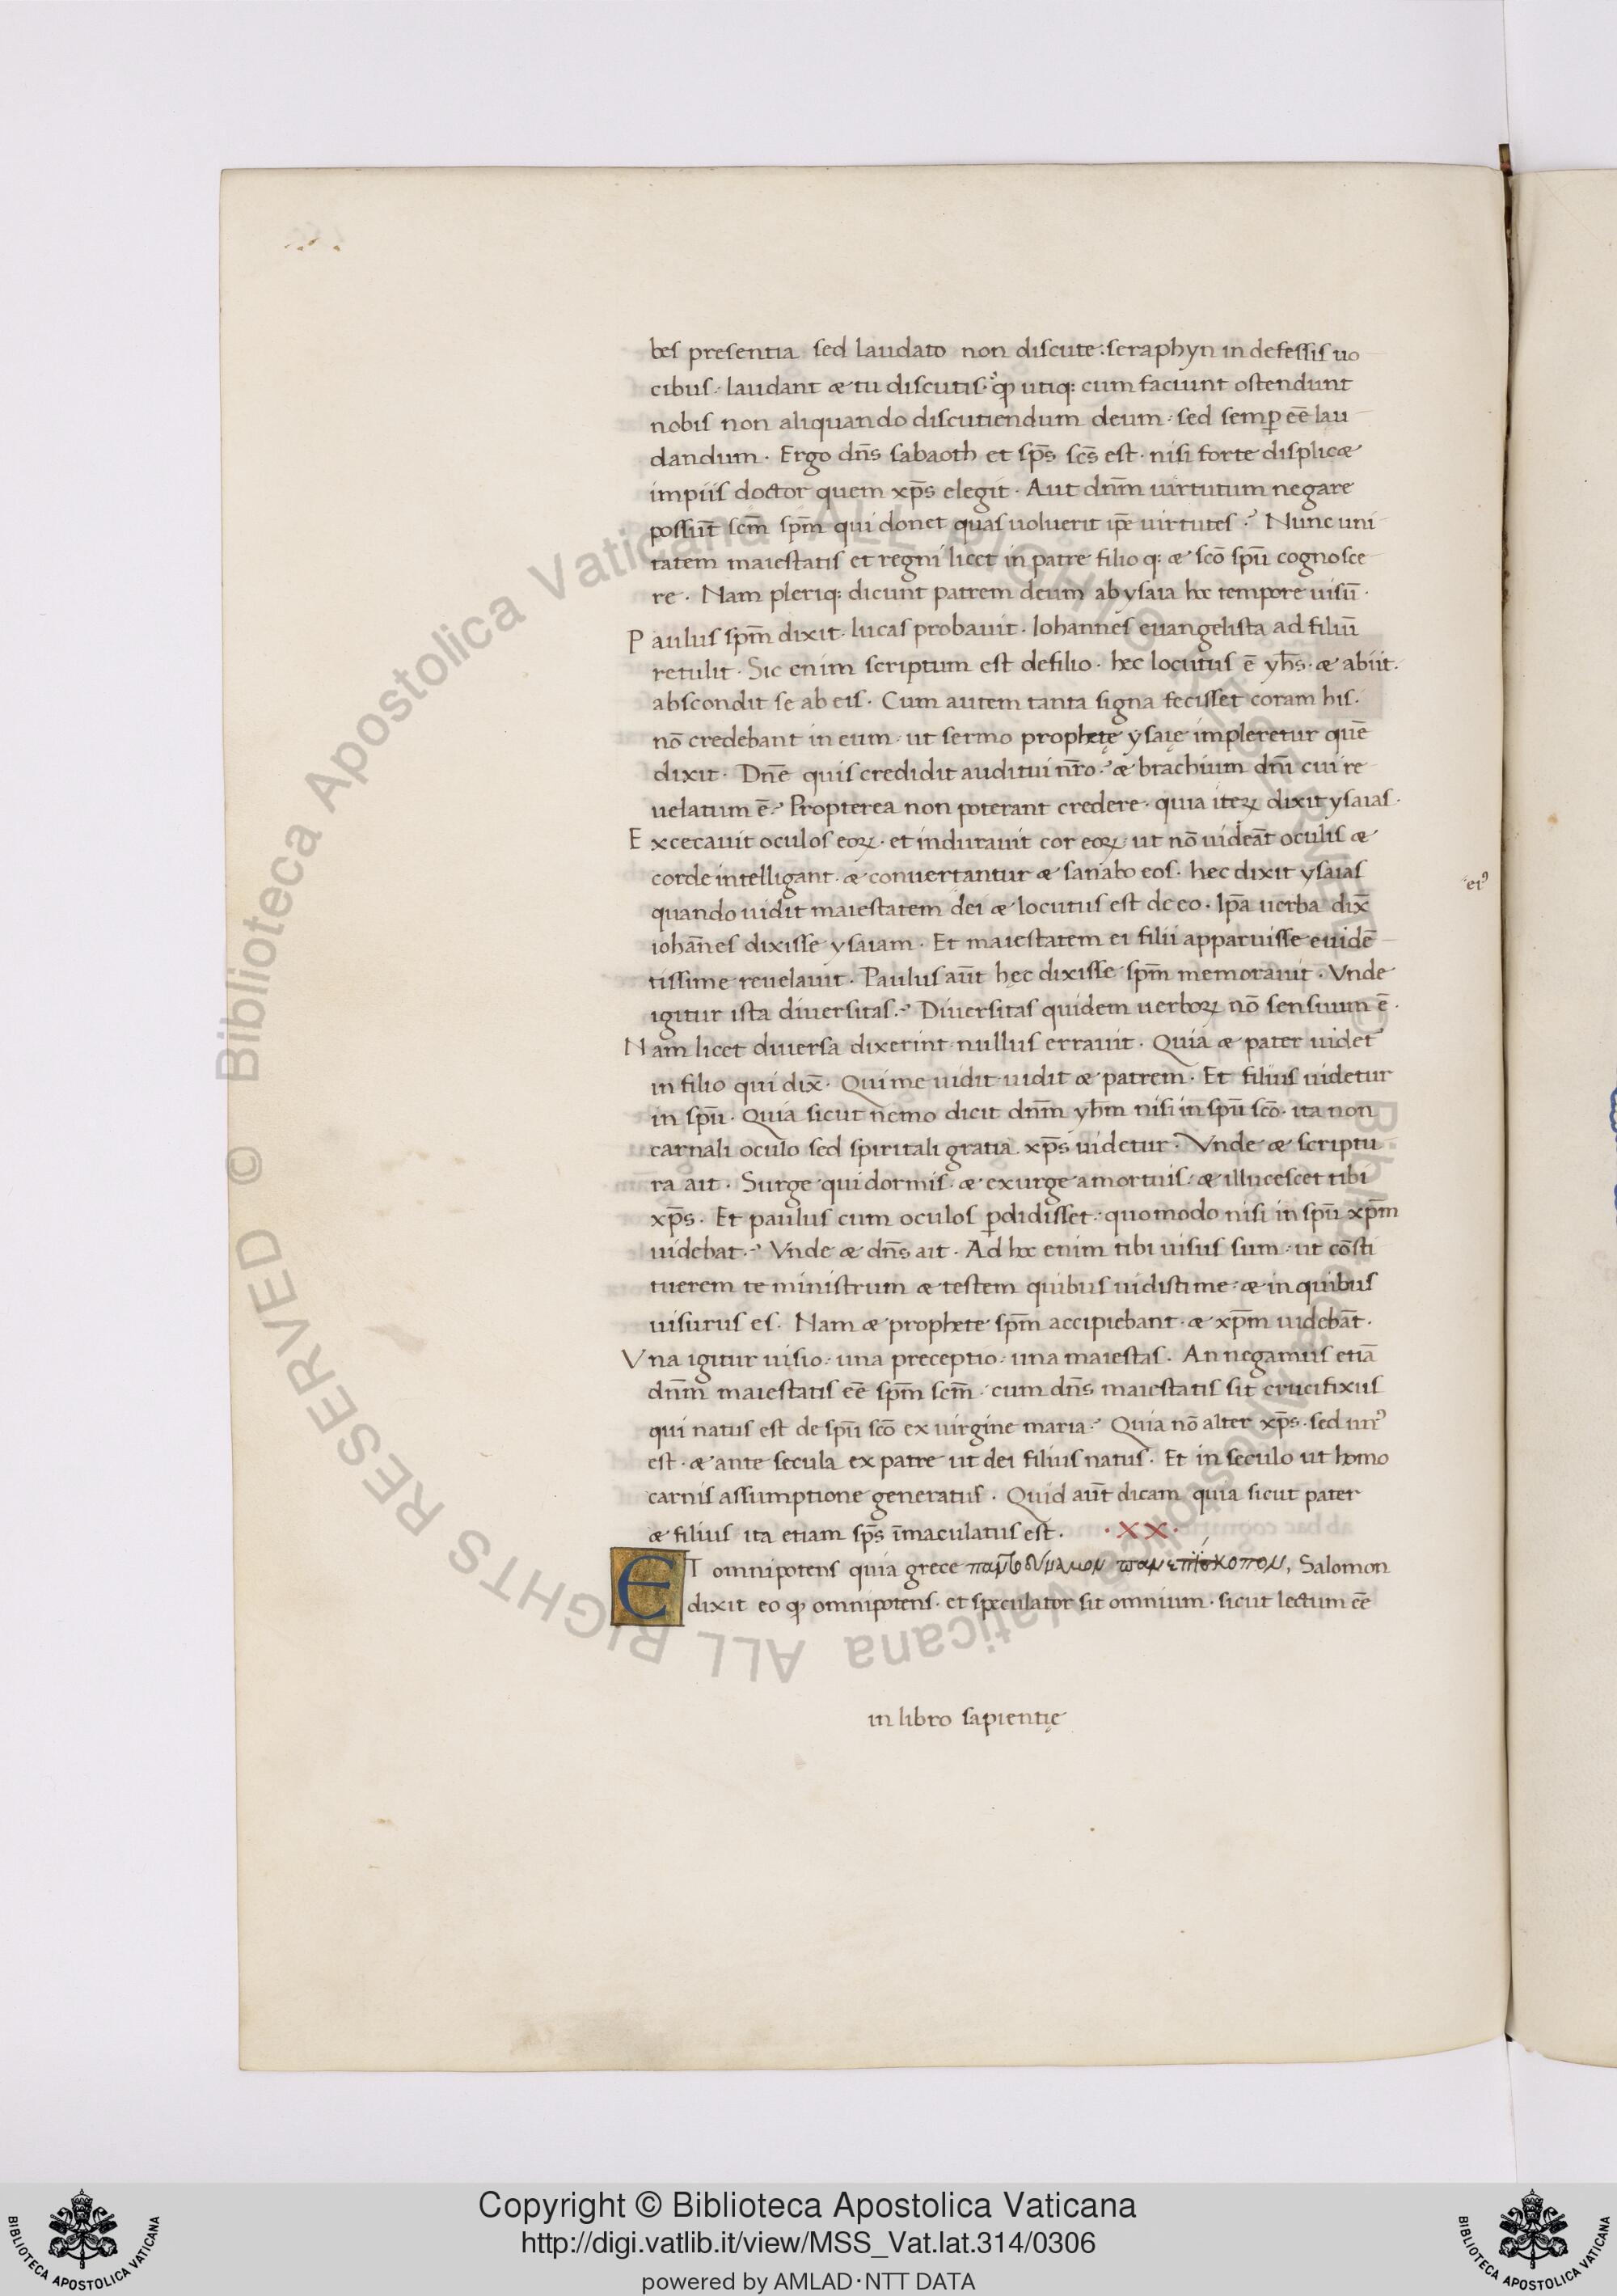 bes presentia sed laudato non discute: seraphyn indefessis uo
cibus· laudant æ tu discutis· qꝙ utiq; cum faciunt ostendunt
nobis non aliquando discutiendum deum· sed semꝑ eē lau
dandum· Ergo dn̄s sabaoth et sp̄s sc̄s est· nisi forte displicæ
impiis doctor quem xp̄s elegit· Aut dnm̄ uirtutum negare
possūt scm̄ spm̄ qui donet quas uoluerit ip̄e uirtutes? Nunc uni
tatem maiestatis et regni licet in patre filioq; æ scō spū cognosce
re· Nam pleriq; dicunt patrem deum ab ysaia hoc tempore uisū·
Paulus spm̄ dixit· lucas probauit· Iohannes euangelista ad filiū
retulit· Sic enim scriptum est de filio· hec locutus ē yh̄s· æ abiit·
abscondit se ab eis· Cum autem tanta signa fecisset coram his·
nō credebant in eum· ut sermo prophetę ysaię impleretur quē
dixit· Dnē quis credidit auditui nr̄o? æ brachium dnī cui re
uelatum ē? Propterea non poterant credere· quia iteꝝ dixit ysaias·
Excecauit oculos eoꝝ· et indurauit cor eoꝝ· ut nō uideāt oculis æ
corde intelligant· æ conuertantur æ sanabo eos· hec dixit ysaias
quando uidit maiestatem dei æ locutus est de eo· Ip̄a uerba dix̄
·eiꝰ
iohān̄es dixisse ysaiam· Et maiestatem ei filii apparuisse euidē
tissime reuelauit· Paulus aūt hęc dixisse spm̄ memorauit· Vnde
igitur ista diuersitas? Diuersitas quidem uerboꝝ nō sensuum ē·
Nam licet diuersa dixerint· nullus errauit· Quia æ pater uidet᷑
in filio qui dix̄· Qui me uidit uidit æ patrem· Et filius uidetur
in spū· Quia sicut nemo dicit dnm̄ yhm̄ nisi in spū scō· ita non
carnali oculo sed spiritali gratia xp̄s uidetur· Vnde æ scriptu
ra ait· Surge qui dormis· æ exurge a mortuis· æ illucescet tibi
xp̄s· Et paulus cum oculos ꝑdidisset· quomodo nisi in spū xpm̄
uidebat? Vnde æ dn̄s ait· Ad hoc enim tibi uisus sum· ut cōsti
tuerem te ministrum æ testem quibus uidisti me· æ in quibus
uisurus es· Nam æ prophete spm̄ accipiebant· æ xpm̄ uidebāt·
Vna igitur uisio· una preceptio· una maiestas· An negamus etiā
dnm̄ maiestatis eē spm̄ scm̄· cum dn̄s maiestatis sit crucifixus
qui natus est de spū scō ex uirgine maria? Quia nō alter xp̄s· sed unꝰ
est· æ ante secula ex patre ut dei filius natus· Et in seculo ut homo
carnis assumptione generatus· Quid aūt dicam quia sicut pater
æ filius ita etiam sp̄s īmaculatus est· ·XX·
ET omnipotens quia grece Salomon
dixit eo ꝙ omnipotens· et speculator sit omnium· sicut lectum eē
in libro sapientię
© Biblioteca Apostolica Vaticana ALL RIGHTS RESERVED
© Biblioteca Apostolica Vaticana ALL RIGHTS RESERVED
Copyright © Biblioteca Apostolica Vaticana
http://digi.vatlib.it/view/MSS_Vat.lat.314/0306
powered by AMLAD·NTT DATA
BIBLIOTECA APOSTOLICA VATICANA
BIBLIOTECA APOSTOLICA VATICANA